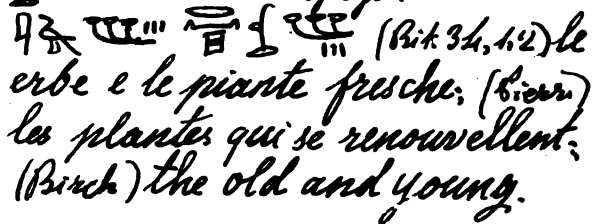 (Rit. 34, 1.2) le
erbe e le piante fresche; (Pierr.)
les plantes qui se renouvellent;
(Birch) the old and young.